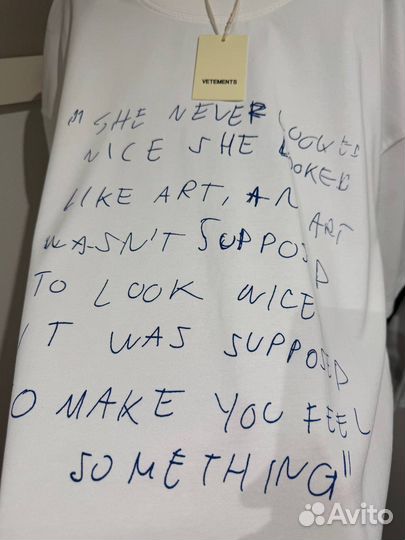 VETEMENTS
"SHE NEVER LOOKED
NICE SHE LOOKED
LIKE ART, AN ART
WASN'T SUPPOSED
TO LOOK NICE
IT WAS SUPPOSED
O MAKE YOU FEEL
SOMETHING"
Avito